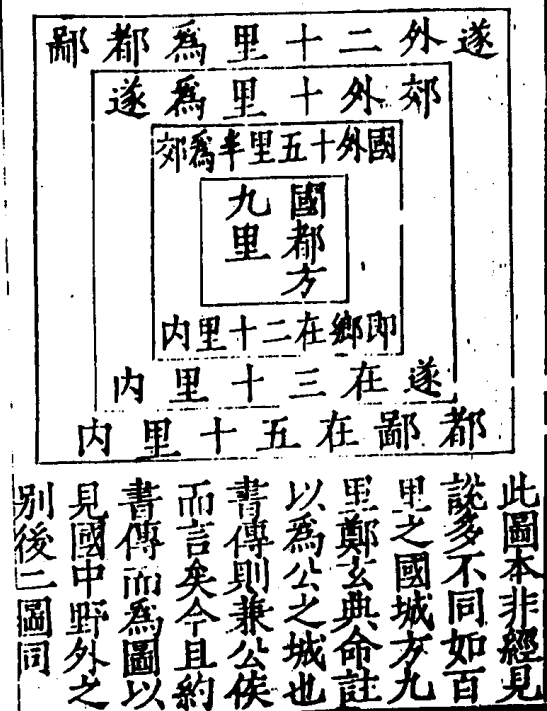 遂外二十里為都鄙
郊外十里為遂
國外十五里半為郊
國都方
九里
即鄉在二十里內
遂在三十里內
都鄙在五十里內
此圖本非經見
說多不同如百
里之國城方九
里鄭玄典命註
以為公之城也
書傳則兼公侯
而言矣今且約
書傳而為圖以
見國中野外之
別後二圖同